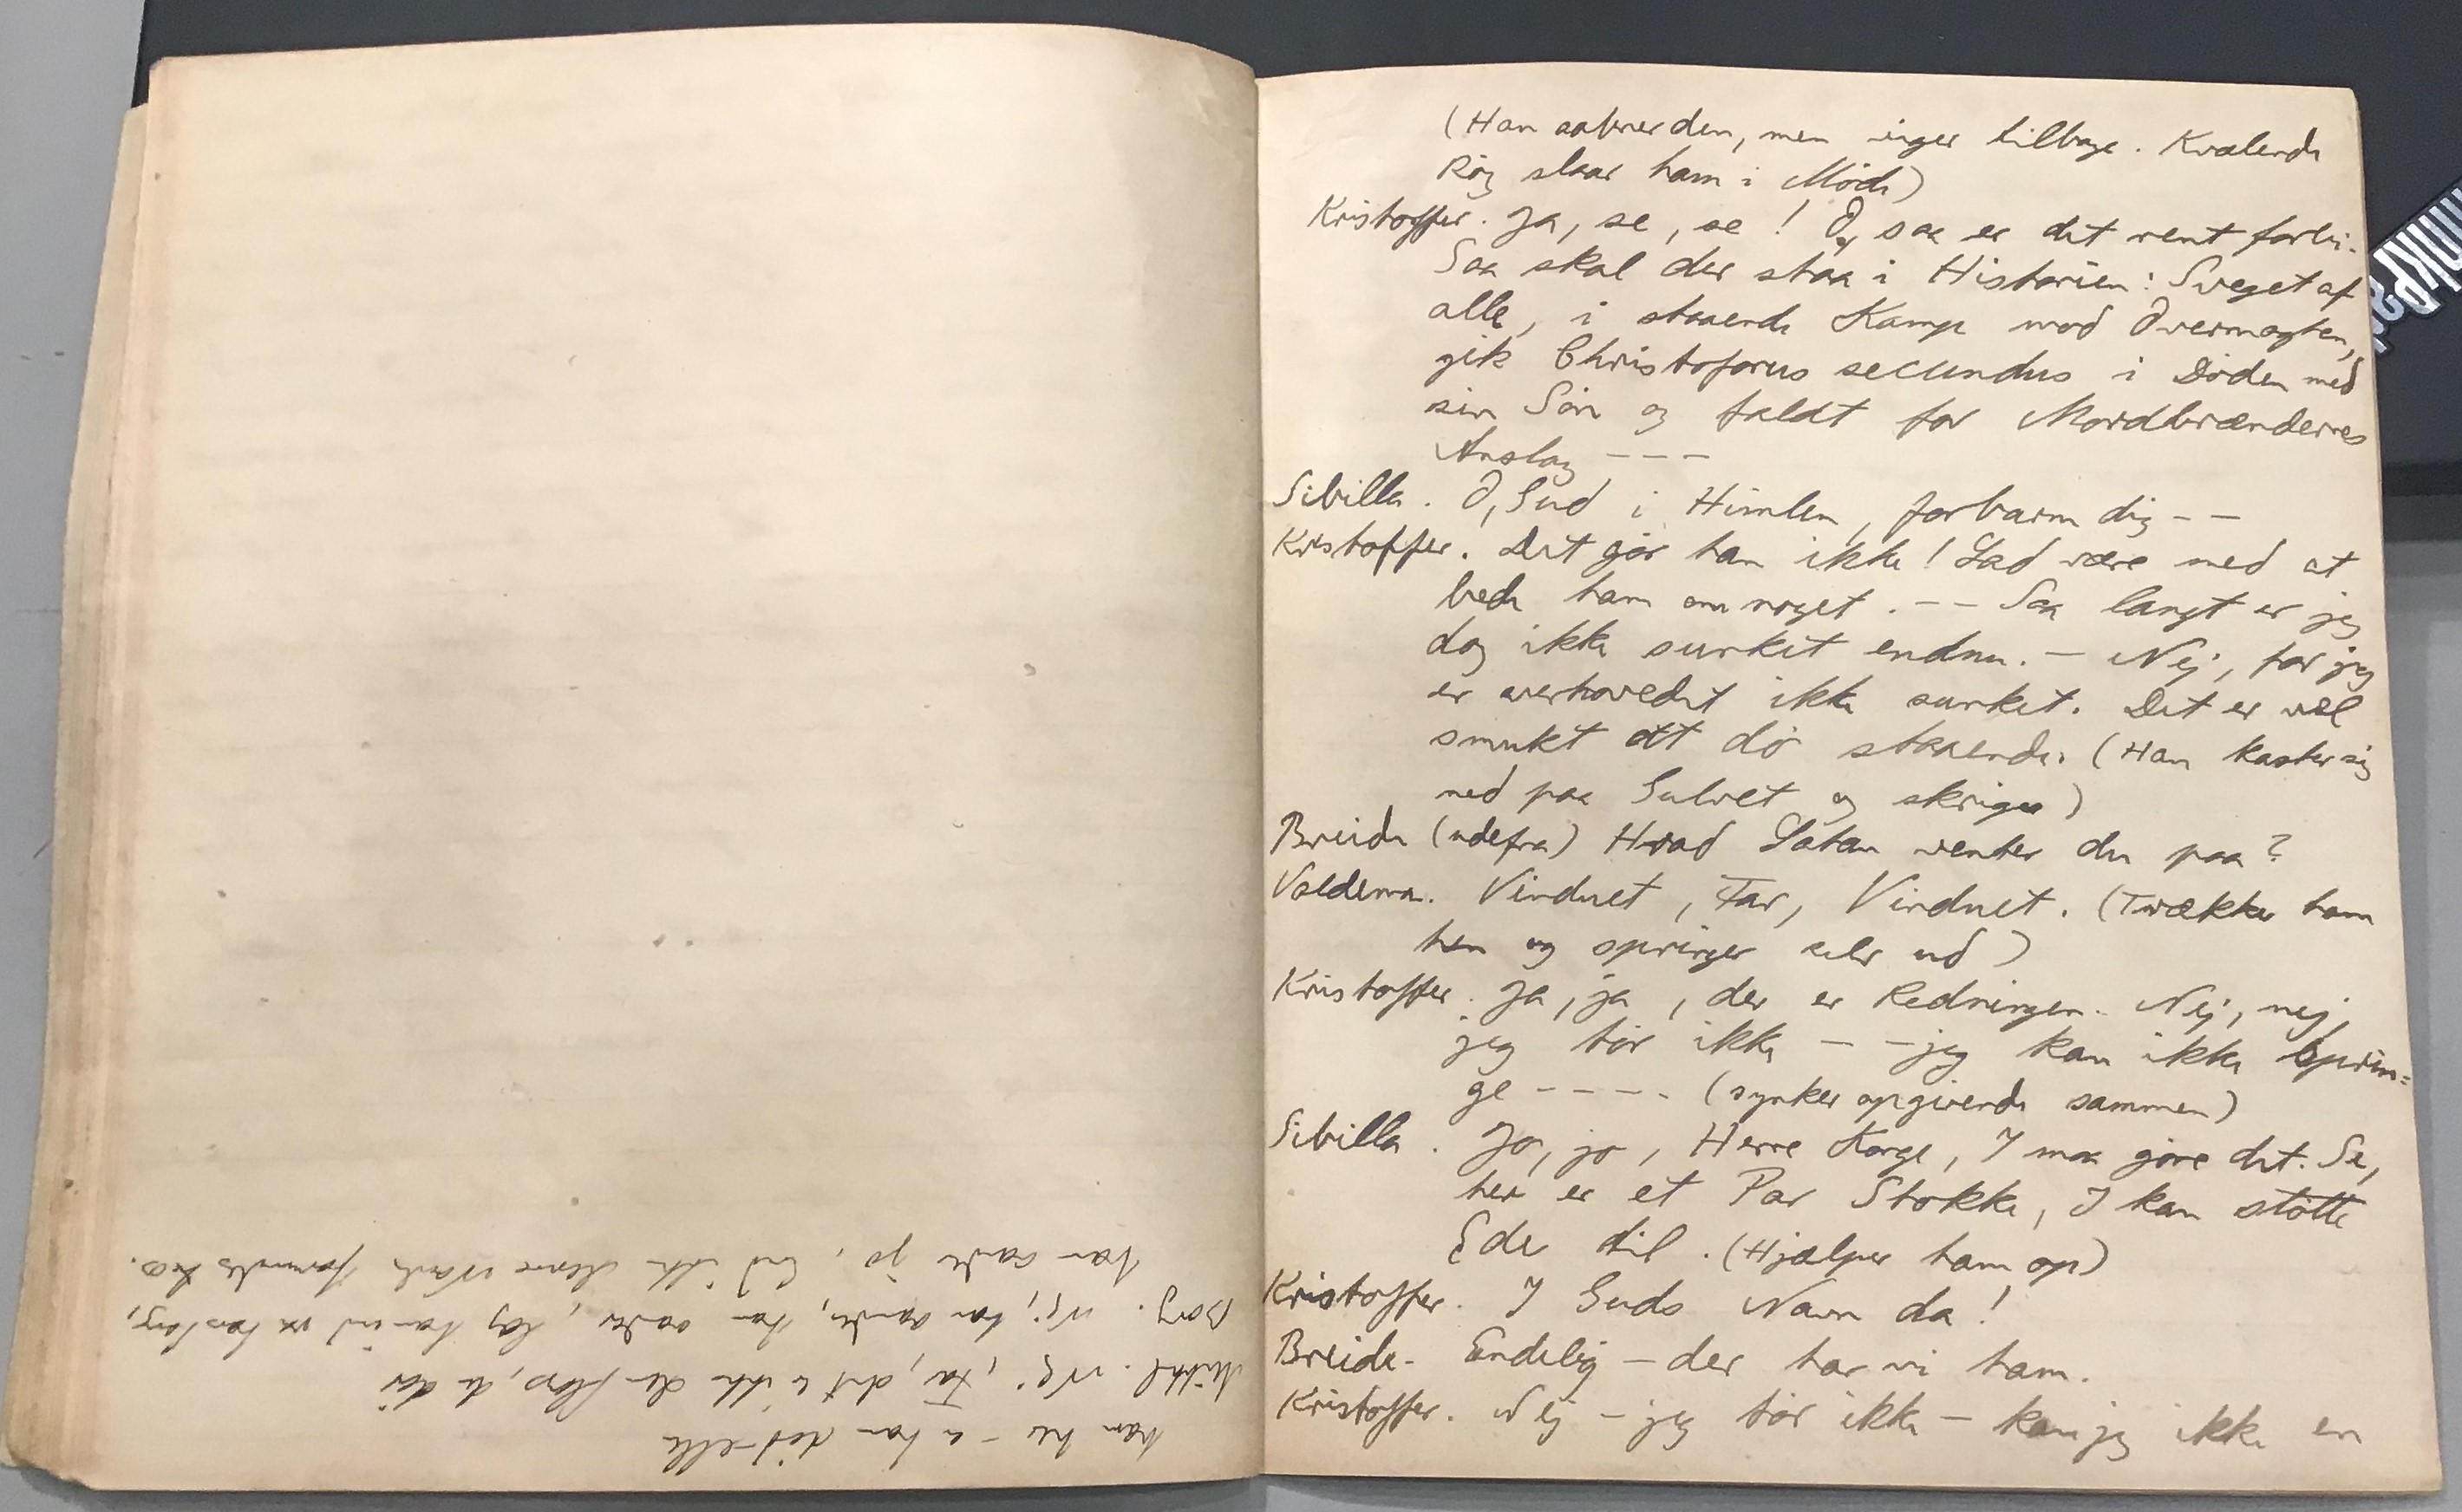 (Han aabner den, men viger tilbage. Kvælende
Røg slaar ham i Møde)
Kristoffer. Ja, se, se! Og saa er det rent forbi.
Saa skal der staa i Historien: Sveget af
alle, i staaende Kamp mod Overmagten,
gik Christoforus secundus i Døden med
sin Søn og faldt for Mordbrændernes
Anslag ---
Sibilla. O, Gud i Himlen, forbarm dig --
Kristoffer. Det gør han ikke! Lad være med at
bede ham om noget. -- Saa langt er jeg
dog ikke sunket endnu. - Nej, for jeg
er overhovedet ikke sunket. Det er vel
smukt at dø staaende. (Han kaster sig
ned paa Gulvet og skriger)
Breide (udefra) Hvad Satan venter du paa?
Valdemar. Vinduet, Far, Vinduet. (Trækker ham
hen og springer selv ud)
Kristoffer. Ja, ja, der er Redningen. Nej, nej,
jeg tør ikke -- jeg kan ikke sprin=
ge ---- (synker opgivende sammen)
Sibilla. Jo, jo, Herre Konge, I maa gøre det. Se,
her er et Par Stokke, I kan støtte
Eder til. (Hjælper ham op)
Kristoffer. I Guds Navn da!
Breide. Endelig - der har vi ham.
Kristoffer. Nej - jeg tør ikke - kan jeg ikke en
han her - er han død eller
Mikkel. Nej, Far, det er ikke den, du
Borg. Nej, han aander, han aander, han
han aander jo, lad ikke denne